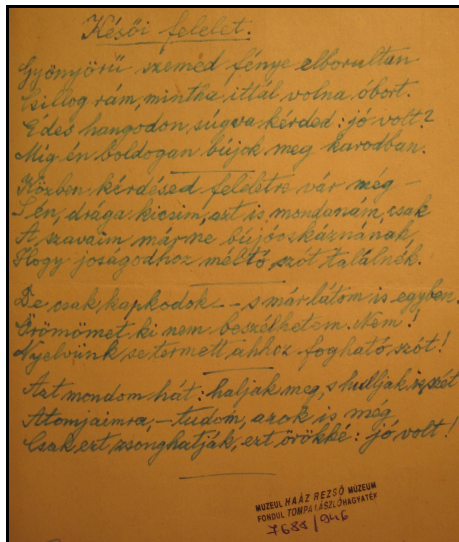 Késői felelet.
Gyönyörű szemed fénye elborultan
Csillog rám, mintha ittál volna óbort.
Édes hangodon, súgva kérded: jó volt?
Míg én boldogan bújok meg karodban.
Közben kérdésed feleletre vár még –
S én, drága kicsim, azt is mondanám, csak
A szavaim már ne bújócskáznának,
Hogy jóságodhoz méltó szót találnék.
De csak kapkodok – – s már látom is egyben:
Örömömet ki nem beszélhetem. Nem!
Nyelvünk se termett ahhoz fogható szót!
Azt mondom hát: haljak meg, s hulljak szét
Atomjaimra, – tudom, azok is még
Csak ezt zsonghatják, ezt örökké: jó volt!
MUZEUL HAÁZ REZSŐ MÚZEUM
FONDUL TOMPA LÁSZLÓ HAGYATÉK
7688/946